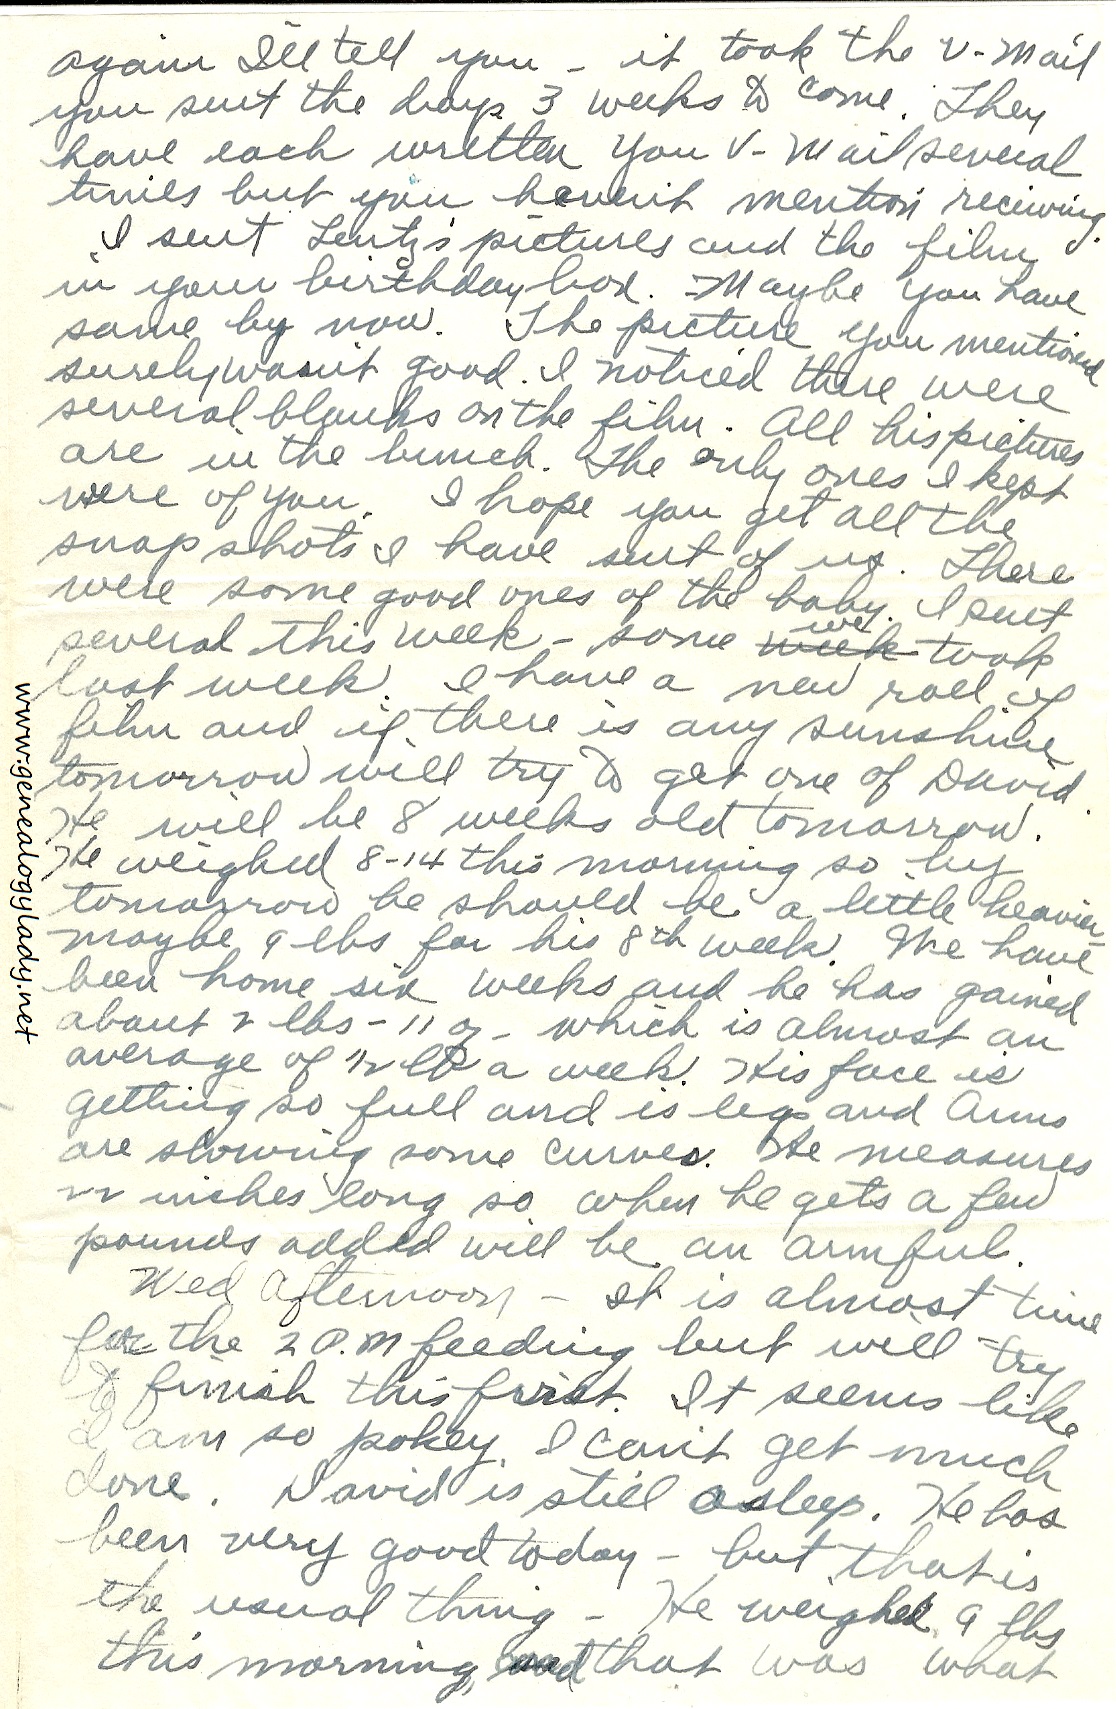 again I'll tell you - it took the V-Mail
you sent the boys 3 weeks to come. They
have each written you V-Mail several
times but you havenit mention receiving.
I sent Lentz's pictures and the film
in your birthday box. Maybe you have
same by now. The picture you mentioned
surely wasn't good. I noticed there were
several blanks on the film. All his pictures
are in the bunch. The only ones I kept
were of you. I hope you get all the
snap shots I have sent of us. There
were some good ones of the baby. I sent
several this week - some week we took
last week. I have a new roll of
film and if there is any sunshine
tomorrow will try to get one of David.
He will be 8 weeks old tomorrow.
He weighed 8-14 this morning so by
tomorrow he should be a little heavier
maybe 9 lbs for his 8th week. We have
been home six weeks and he has gained
about 2 lbs - 11 oz - which is almost an
average of 1/2 lb a week. His face is
getting so full and is legs and arms
are showing some curves. He measures
22 inches long so when he gets a few
pounds added will be an armful.
Wed afternoon - It is almost time
for the 2 P.M feeding but will try
to finish this first. It seems like
I am so pokey. I can't get much
done. David is still asleep. He has
been very good today - but that is
the usual thing - He weighed 9 lbs
this morning, and that was what
www.genealogylady.net